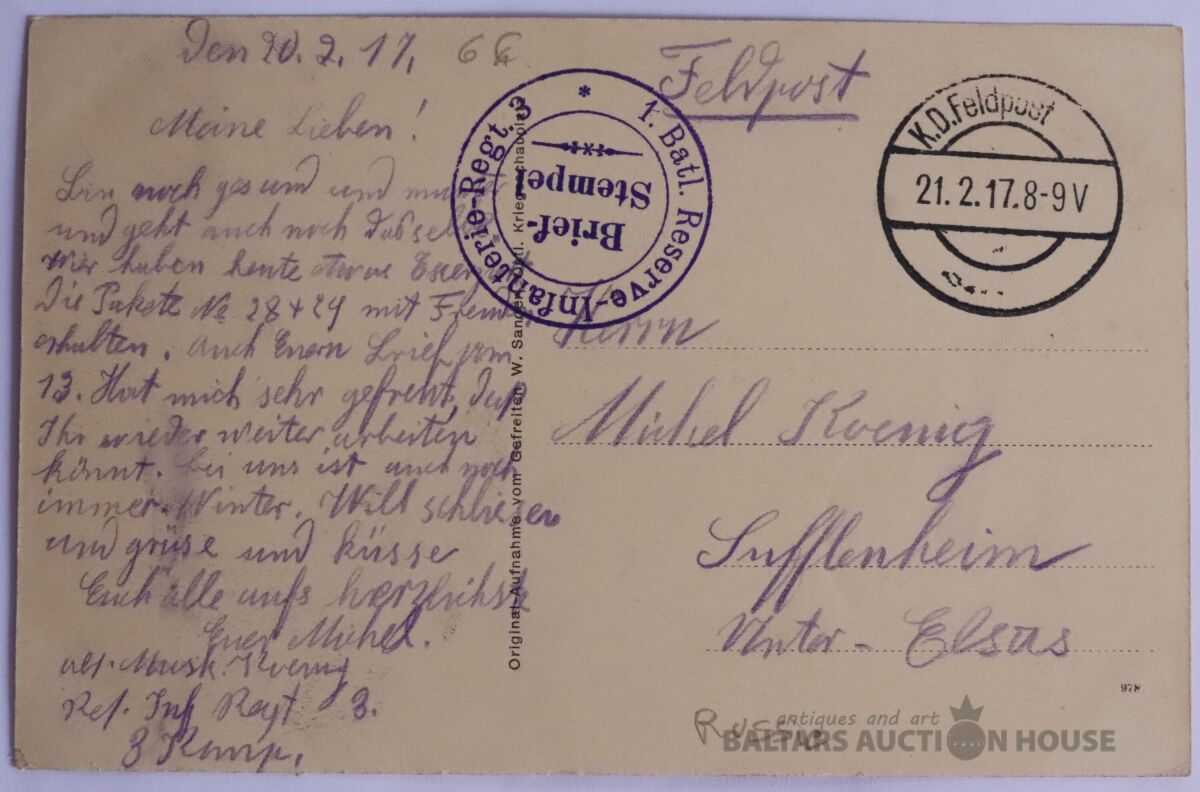 Den 20.2.17.
Meine Lieben!
Bin noch gesund und
und geht auch noch
Wir haben heute etwas
Die Pakete No 28+29 mit
erhalten. Auch Euern Brief vom
13. Hat mich sehr gefreut, daß
Ihr wieder weiter arbeiten
könnt. Bei uns ist auch noch
immer Winter. Will schließen
und grüse und küsse
Euch alle aufs herzlichst
Euer Michel.
Musk. Koenig
Res. Inf Regt 3.
3 Komp.
66
Feldpost
1. Batl. Reserve-Infanterie-Regt. 3 *
Brief-
Stempel
K.D.Feldpost
21.2.17.8-9V
Original-Aufnahme vom Gefreiten W. Sanden Kriegsschauplatz
Herrn
Michel Koenig
Sufflenheim
Unter-Elsas
978
Russ
antiques and art
BALTARS AUCTION HOUSE